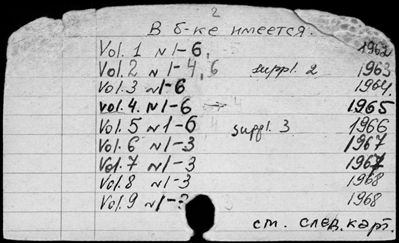 2
В б-ке имеется:
Vol. 1 N 1-6 1962
Vol. 2 N 1-4, 6 suppl. 2 1963
Vol. 3 N 1-6 1964.
Vol. 4. N 1-6 → 4 1965
Vol. 5 N 1-6 4 suppl. 3 1966
Vol. 6 N 1-3 1967
Vol. 7 N 1-3 1967
Vol. 8 N 1-3 1968
Vol. 9 N 1-3 1968
см. след. карт.